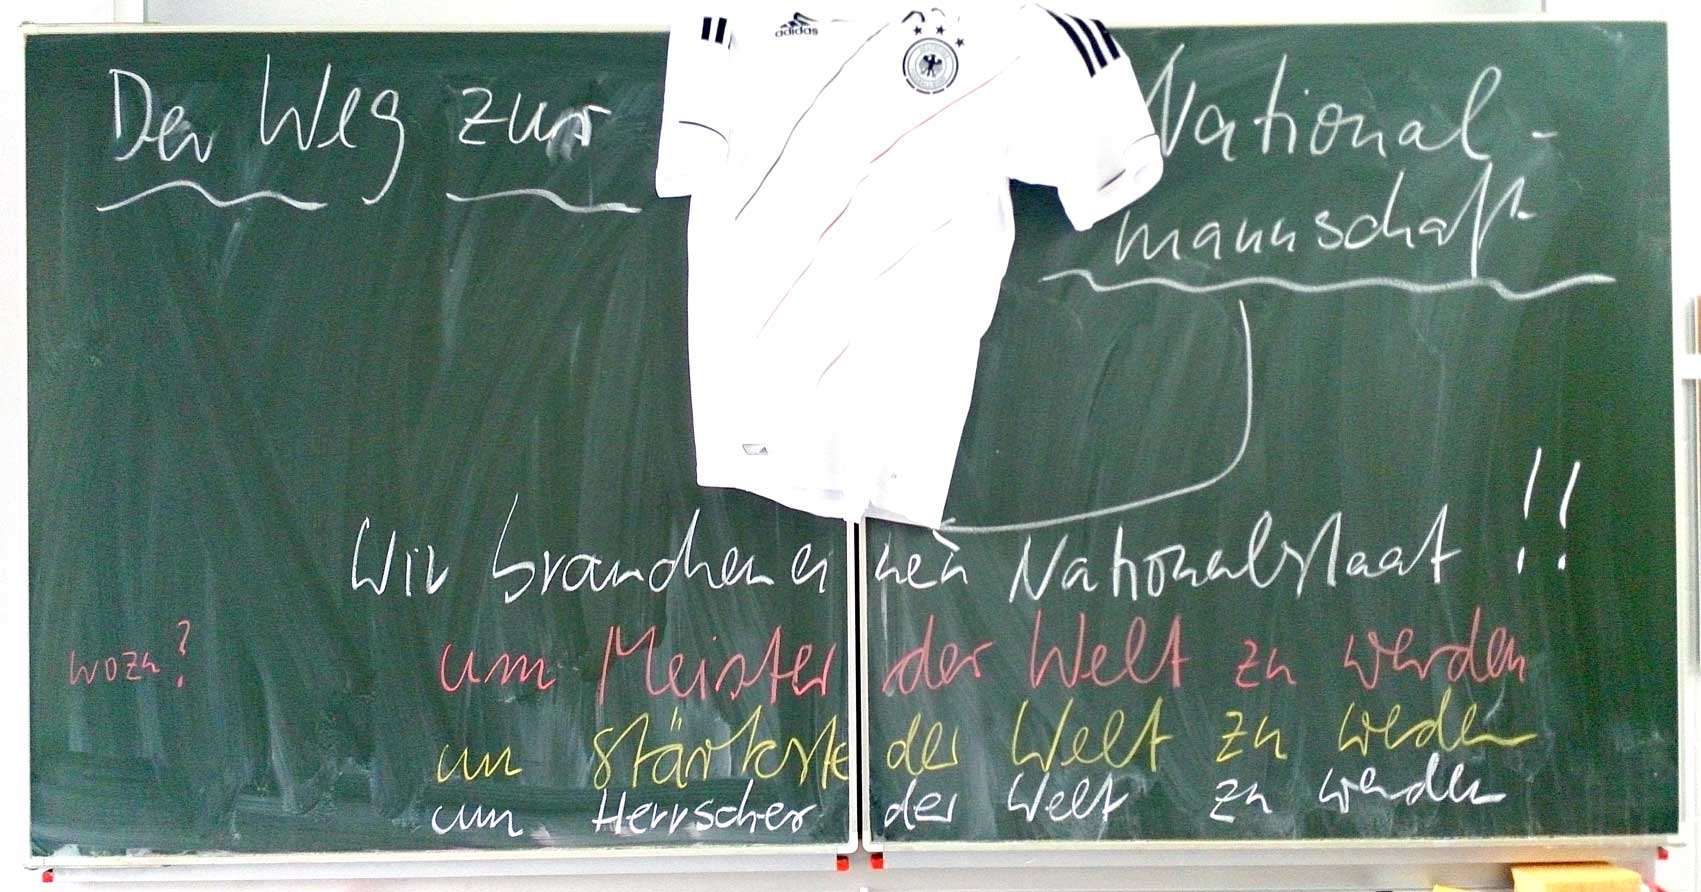 adidas
Der Weg zur National-
mannschaft
Wir brauchen einen Nationalstaat!!
wozu? um Meister der Welt zu werden
um stärkste der Welt zu werden
um Herrscher der Welt zu werden